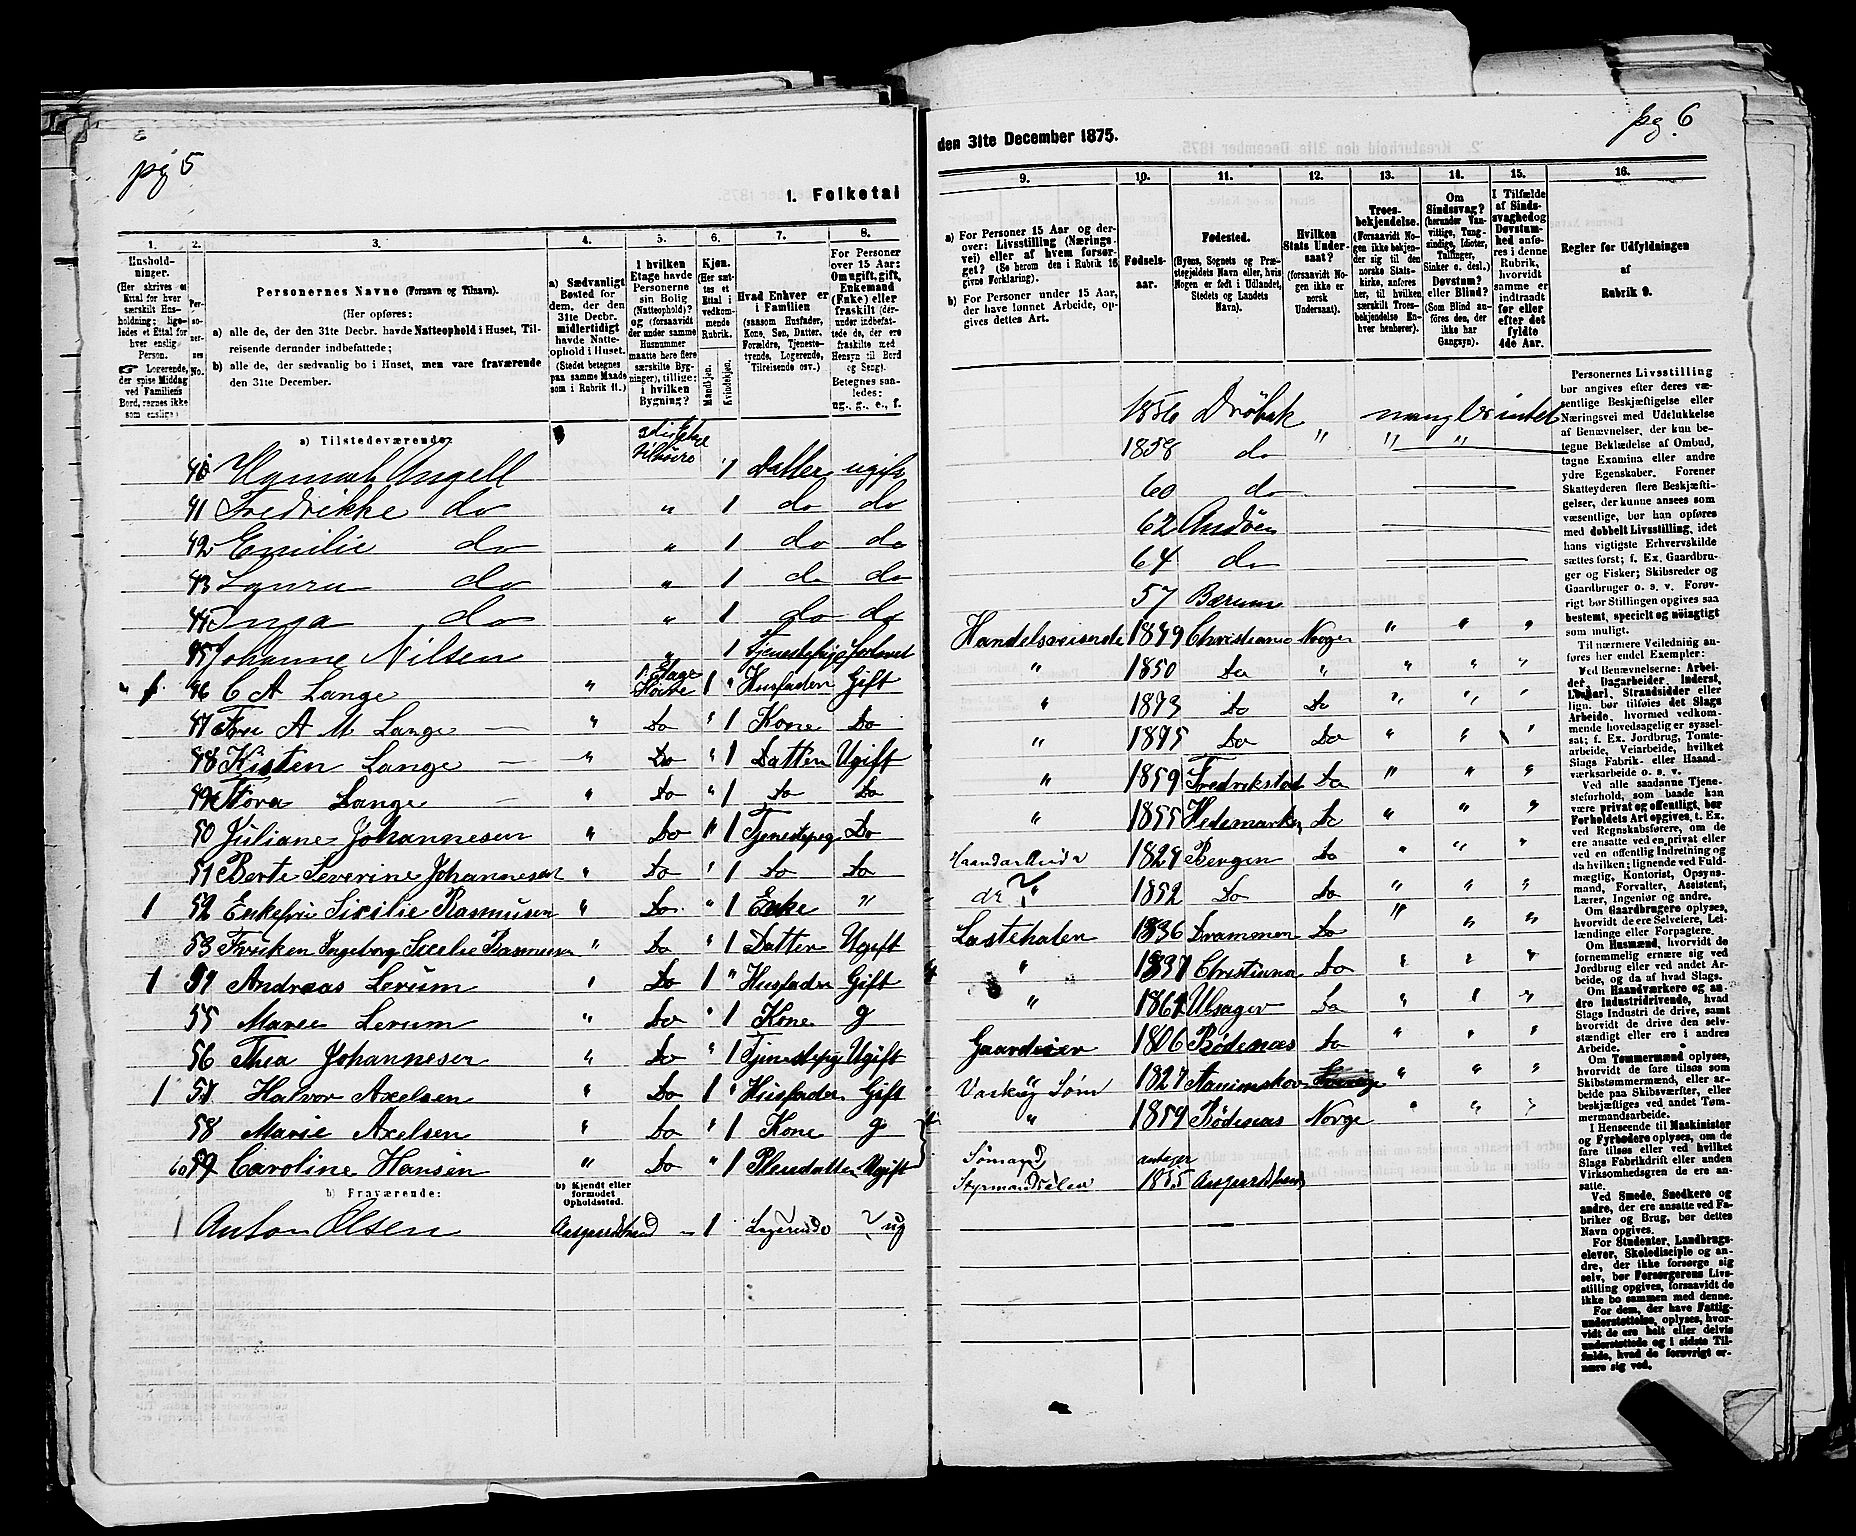 pg 5
1. Folketal
1. 2. 3. 4. 5. 6. 7. 8.
Husholdninger.
(Her skrives et Ettal for hver særskilt Husholdning; ligeledes et Ettal for hver enslig Person.
☞ Logerende, der spise Middag ved Familiens Bord, regnes ikke som enslige.)
Personernes No.
Personernes Navne (Fornavn og Tilnavn).
(Her opføres:
a) alle de, der den 31te Decbr. havde Natteophold i Huset, Tilreisende derunder indbefattede;
b) alle de, der sædvanlig bo i Huset, men vare fraværende den 31te December.
a) Sædvanligt Bosted for dem, der den 31te Decbr. midlertidigt havde Natteophold i Huset.
(Stedet betegnes paa samme Maade som i Rubrik 11.)
I hvilken Etage havde Personerne sin Bolig (Natteophold)? og (forsaavidt der under samme Husnummer maatte høre flere særskilte Bygninger), tillige: i hvilken Bygning?
Kjøn.
(Her sættes et Ettal i vedkommende Rubrik.
Mandkjøn. Kvindekjøn.
Hvad Enhver er i Familien
(saasom Husfader, Kone, Søn, Datter, Forældre, Tjenestetyende, Logerende, Tilreisende osv.)
For Personer over 15 Aar: Om ugift, gift, Enkemand (Enke) eller fraskilt (derunder indbefattede de, der ere fraskilte med Hensyn til Bord og Seng).
Betegnes saaledes: ug., g., e., f.
a) Tilstedeværende:
40 Hannah Angell 1 Datter ugift
41 Fredrikke do " 1 do do
42 Emilie do " 1 do do
43 Laura do " 1 do do
44 Inga do " 1 do do
45 Johanne Nilsen " 1 Tjenestepige
1 46 C A Lange " 1 Etage Høire 1 " Husfader Gift
47 Fru A M Lange — " Do " 1 Kone Do
48 Kisten Lange — " Do " 1 Datter Ugift
49 Thora Lange — " Do " 1 Do Do
50 Juliane Johannesen " Do " 1 Tjenestepeg Do
51 Berte Severine Johannesen " Do " 1 Do Do
1 52 Enkefru Sicilie Rasmusen " Do " 1 Enke "
53 Frøken Ingeborg Sicelie Rasmusen " Do " 1 Datter Ugift
1 54 Andreas Lerum " Do 1 " Husfader Gift
55 Maree Lerum " Do " 1 Kone g
56 Thea Johannesen " Do " 1 Tjenestepeg Ugift
1 57 Halvor Axelsen " Do 1 " Husfader Gift
58 Marie Axelsen " Do " 1 Kone g
60 59 Caroline Hansen " Do " 1 Pleiedatter Ugift
b) Fraværende:
b) Kjendt eller formodet Opholdssted.
1 Anton Olsen Aasgaardstrand " 1 Logerende ug
den 31te December 1875.
pg 6
9. 10. 11. 12. 13. 14. 15. 16.
a) For Personer 15 Aar og derover: Livsstilling (Næringsvei) eller af hvem forsørget? (Se herom den i Rubrik 16 givne Forklaring).
b) For Personer under 15 Aar, der have lønnet Arbeide, opgives dettes Art.
Fødselsaar.
Fødested.
(Byens, Sognets og Præstegjeldets Navn eller, hvis Nogen er født i Udlandet, Stedets og Landets Navn).
Hvilken Stats Undersaat?
(forsaavidt Nogen ikke er norsk Undersaat).
Troesbekjendelse.
(Forsaavidt Nogen ikke bekjender sig til den norske Statskirke, anføres her, til hvilken særskilt Troesbekjendelse Enhver henhører).
Om Sindssvag?
(herunder Vanvittige, Tungsindige, Idioter, Tallinger, Sinker o. desl.)
Døvstum?
eller Blind?
(Som Blind anføres den, der ikke har Gangsyn).
I Tilfælde af Sindssvaghed og Døvstumhed anføres i denne Rubrik, hvorvidt samme er indtraadt før eller efter det fyldte 4de Aar.
Regler for Udfyldningen af Rubrik 9.
1856 Drøbak mangler intet
1858 do " " "
60 do
62 Andøen
64 do
57 Bærum
Handelsreisende 1849 Christiania Norge " " "
" 1850 Do " " " "
" 1873 Do Do " " "
" 1875 Do Do " " "
" 1859 Fredrikstad Do " " "
" 1855 Hedemarken Do " " "
Haandarbeide 1829 Bergen Do " " "
do " 1852 Do Do " " "
1836 Drammen Do " " "
" Christiania Do " " "
" 1861 Ulsager Do " " "
Gaardeier 1806 Rødenæs Do " " "
Vask og Søm 1827 " " "
" 1859 Rødenæs Norge " " "
Sømand antager
1855
Personernes Livsstilling bør angives efter deres væsentlige Beskjæftigelse eller Næringsvei med Udelukkelse af Benævnelser, der kun betegne Beklædelse af Ombud, tagne Examina eller andre ydre Egenskaber. Forener Skatteyderen flere Beskjæftigelser, der kunne ansees som væsentlige, bør han opføres med dobbelt Livsstilling, idet hans vigtigste Erhvervskilde sættes først; f. Ex. Gaardbruger og Fisker; Skibsreder og Gaardbruger o. s. v. Forøvrigt bør Stillingen opgives saa bestemt, specielt og nøiagtigt som muligt.
To nærmere Veiledning anføres her endel Exempler:
Ved Benævnelserne: Arbeider, Dagarbeider, Inderst, Løskarl, Strandsidder eller lign. bør tilføies det Slags Arbeide, hvormed vedkommende hovedsagelig er sysselsat; f. Ex. Jordbrug, Tomtearbeide, Veiarbeide, hvilket Slags Fabrik- eller Haandværksarbeide o. s. v.
Ved alle saadanne Tjenesteforhold, som baade kan være privat og offentligt, bør Forholdets Art opgives, t. Ex. ved Regnskabsførere, om de ere ansatte ved en privat eller ved en offentlig Indretning og da hvilken; lignende ved Fuldmægtig, Kontorist, Opsynsmand, Forvalter, Assistent, Lærer, Ingeniør og andre.
Om Gaardbrugere oplyses, hvorvidt de ere Selveiere, Leilændinge eller Forpagtere.
Om Husmænd, hvorvidt de fornemmelig ernære sig ved Jordbrug eller ved andet Arbeide, og da af hvad Slags.
Om Haandværkere og andre Industridrivende, hvad Slags Industri de drive, samt hvorvidt de drive den selvstændigt eller ere i andres Arbeide.
Om Tømmermænd oplyses, hvorvidt de fare tilsøs som Skibstømmermænd, eller arbeide paa Skibsværfter, eller beskjæftiges ved andet Tømmermandsarbeide.
I Henseende til Maskinister og Fyrbødere oplyses, om de fare tilsøs eller ved hvilket Slags Fabrikdrift eller anden Virksomhedsgren de ere ansatte.
Ved Smede, Snedkere og andre, der ere ansatte ved Fabriker og Brug, bør dettes Navn opgives.
For Studenter, Landbrugselever, Skoledisciple og andre, der ikke forsørge sig selv, bør Forsørgerens Livsstilling opgives, forsaavidt de ikke bo sammen med denne.
For dem, der have Fattigunderstøttelse, oplyses, hvorvidt de ere helt eller delvis understøttede og i sidste Tilfælde, hvad de forøvrigt ernære sig ved.